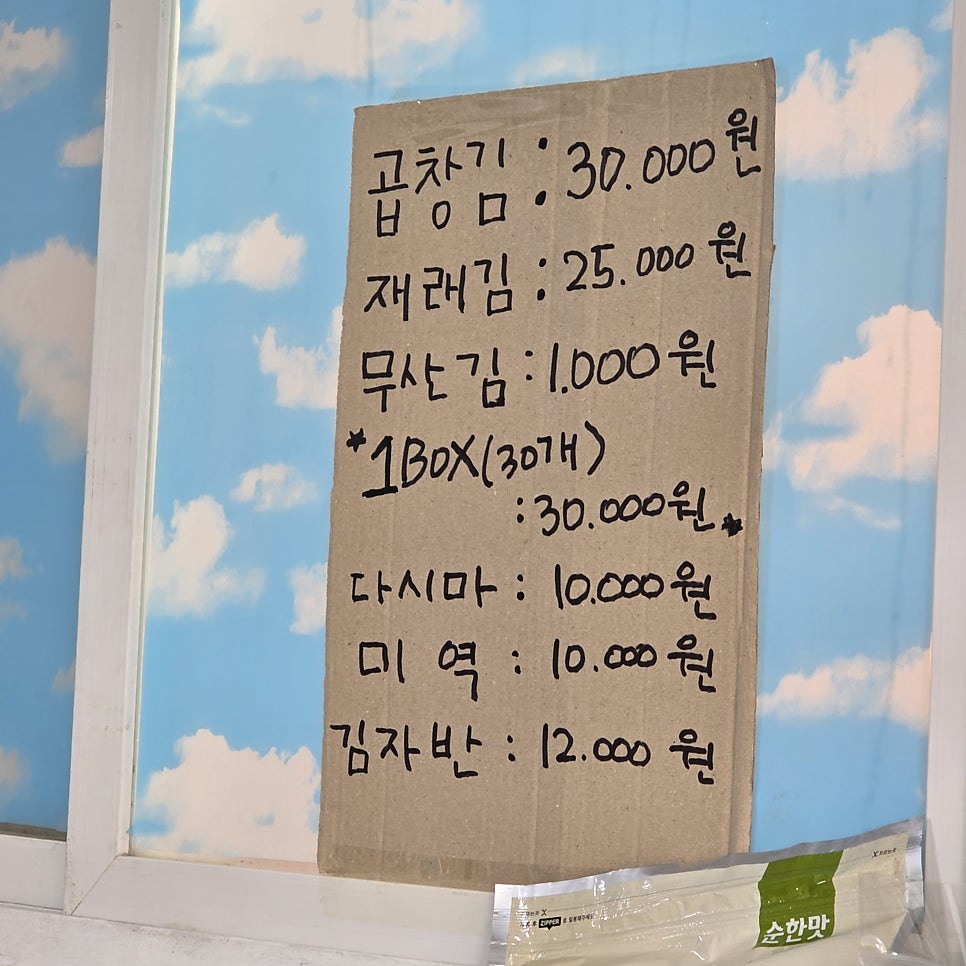 곱창김 : 30.000원
재래김 : 25.000원
무산김 : 1.000원
*1BOX(30개)
: 30.000원*
다시마 : 10.000원
미 역 : 10.000원
김자반 : 12.000원
순한맛
ZIPPER